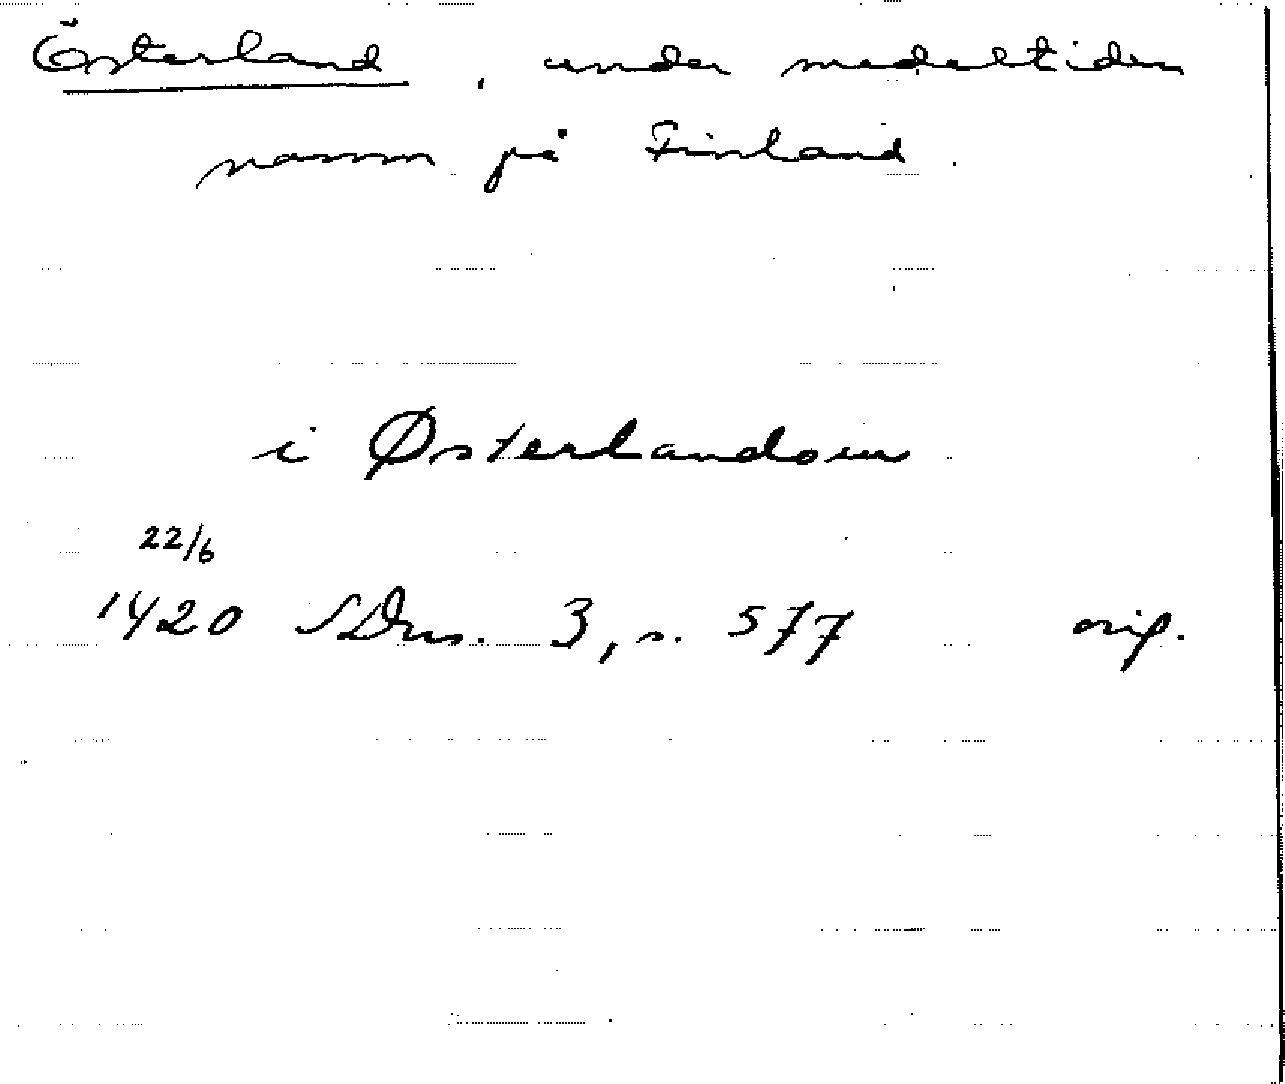 Österland, under medeltiden
namn på Finland.
i Østerlandom
22/6
1420 SDns. 3, s. 577 orig.